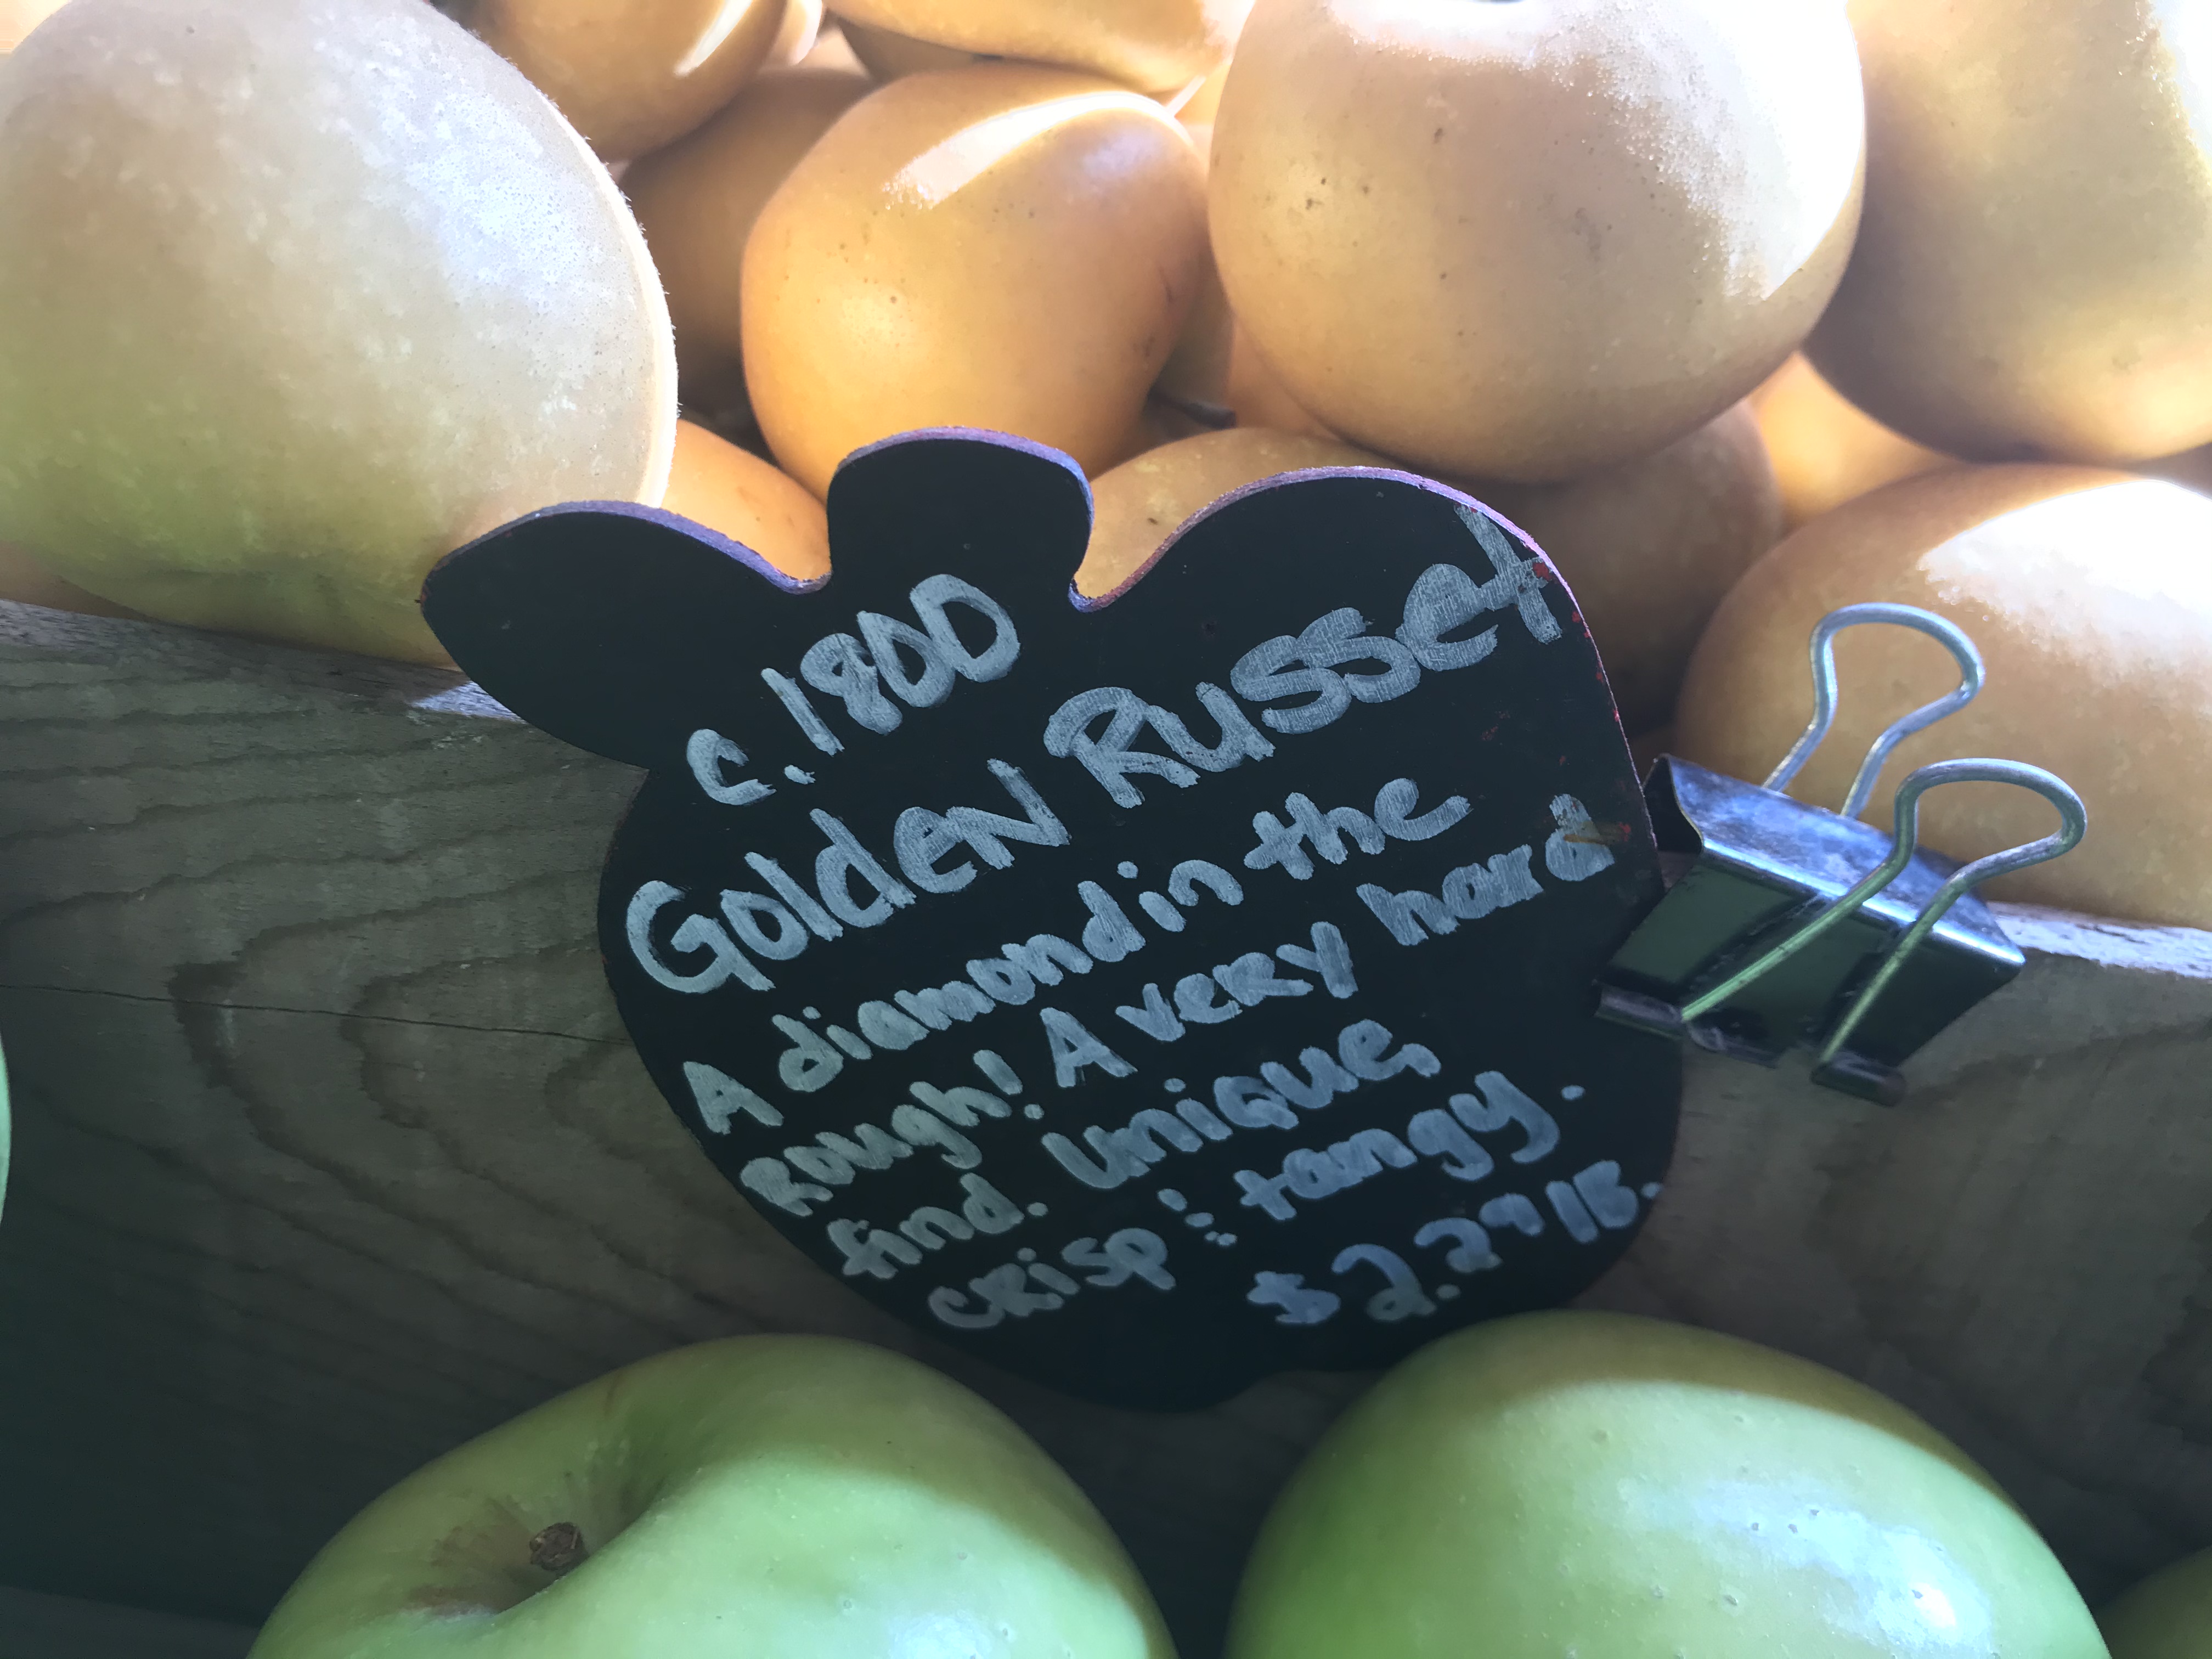 c.1800
Golden Russet
A diamond in the
Rough! A very hard
find. Unique,
crisp & tangy.
$2.29 lb.